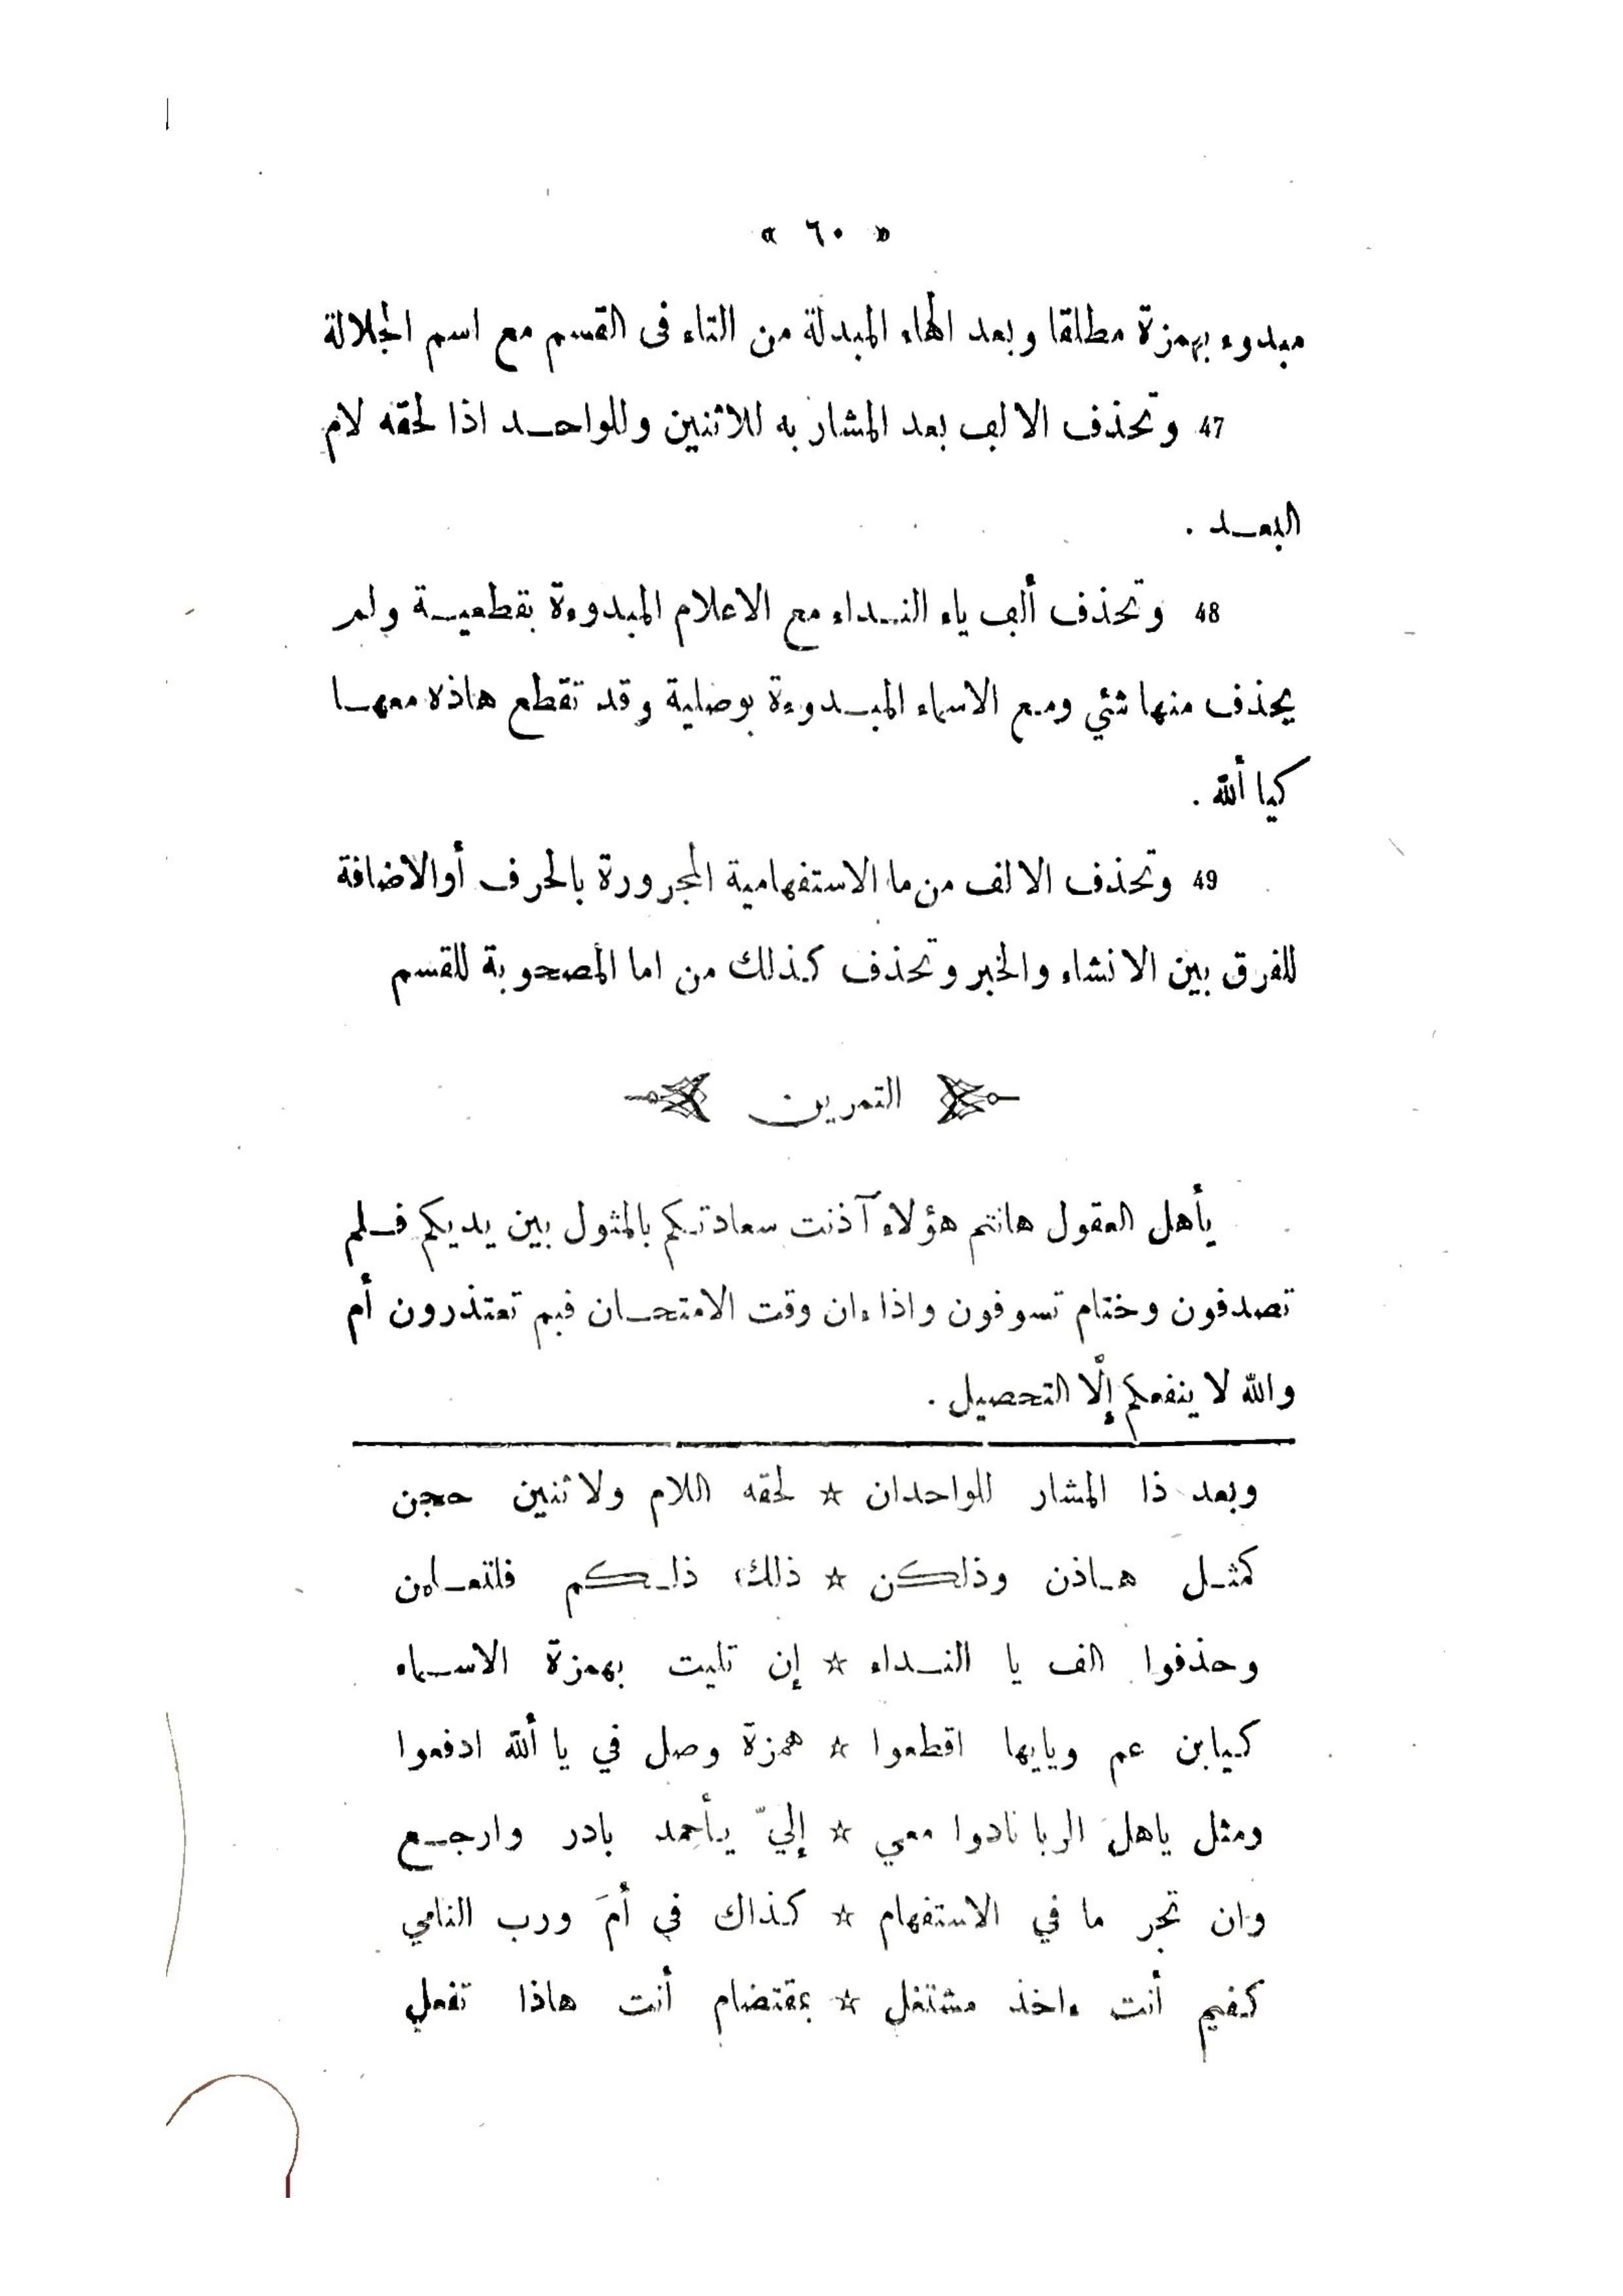 « ٦٠ »
مبدوء بهمزة مطلقا وبعد الهاء المبدلة من التاء فى القسم مع اسم الجلالة
47 وتحذف الالف بعد المشار به للاثنين وللواحد اذا لحقه لام
البعد .
48 وتحذف ألف ياء النداء مع الاعلام المبدوءة بقطعية ولم
يحذف منها شئي ومع الاسماء المبدوءة بوصلية وقد تقطع هاذه معها
كيا ألله .
49 وتحذف الالف من ما الاستفهامية المجرورة بالحرف أوالاضافة
للفرق بين الانشاء والخبر وتحذف كذلك من اما المصحوبة للقسم
التمرين
يأهل العقول هانتم هؤلاء آذنت سعادتكم بالمثول بين يديكم فلم
تصدفون وختام تسوفون واذا ءان وقت الامتحان فبم تعتذرون أم
والله لا ينفعكم إلّا التحصيل .
وبعد ذا المشار للواحدان ☆ لحقه اللام ولاثنين حجن
كمثل هاذن وذلكن ☆ ذلك، ذلكم فلتعلمن
وحذفوا الف يا النداء ☆ إن تليت بهمزة الاسماء
كيابن عم ويايها اقطعوا ☆ همزة وصل في يا ألله ادفعوا
ومثل ياهلَ الربا نادوا معي ☆ إليّ يأحمد بادر وارجع
وان تجر ما في الاستفهام ☆ كذاك في أمَ ورب النامي
كفيم أنت ءاخذ مشتغل ☆ بمقتضام أنت هاذا تفعل